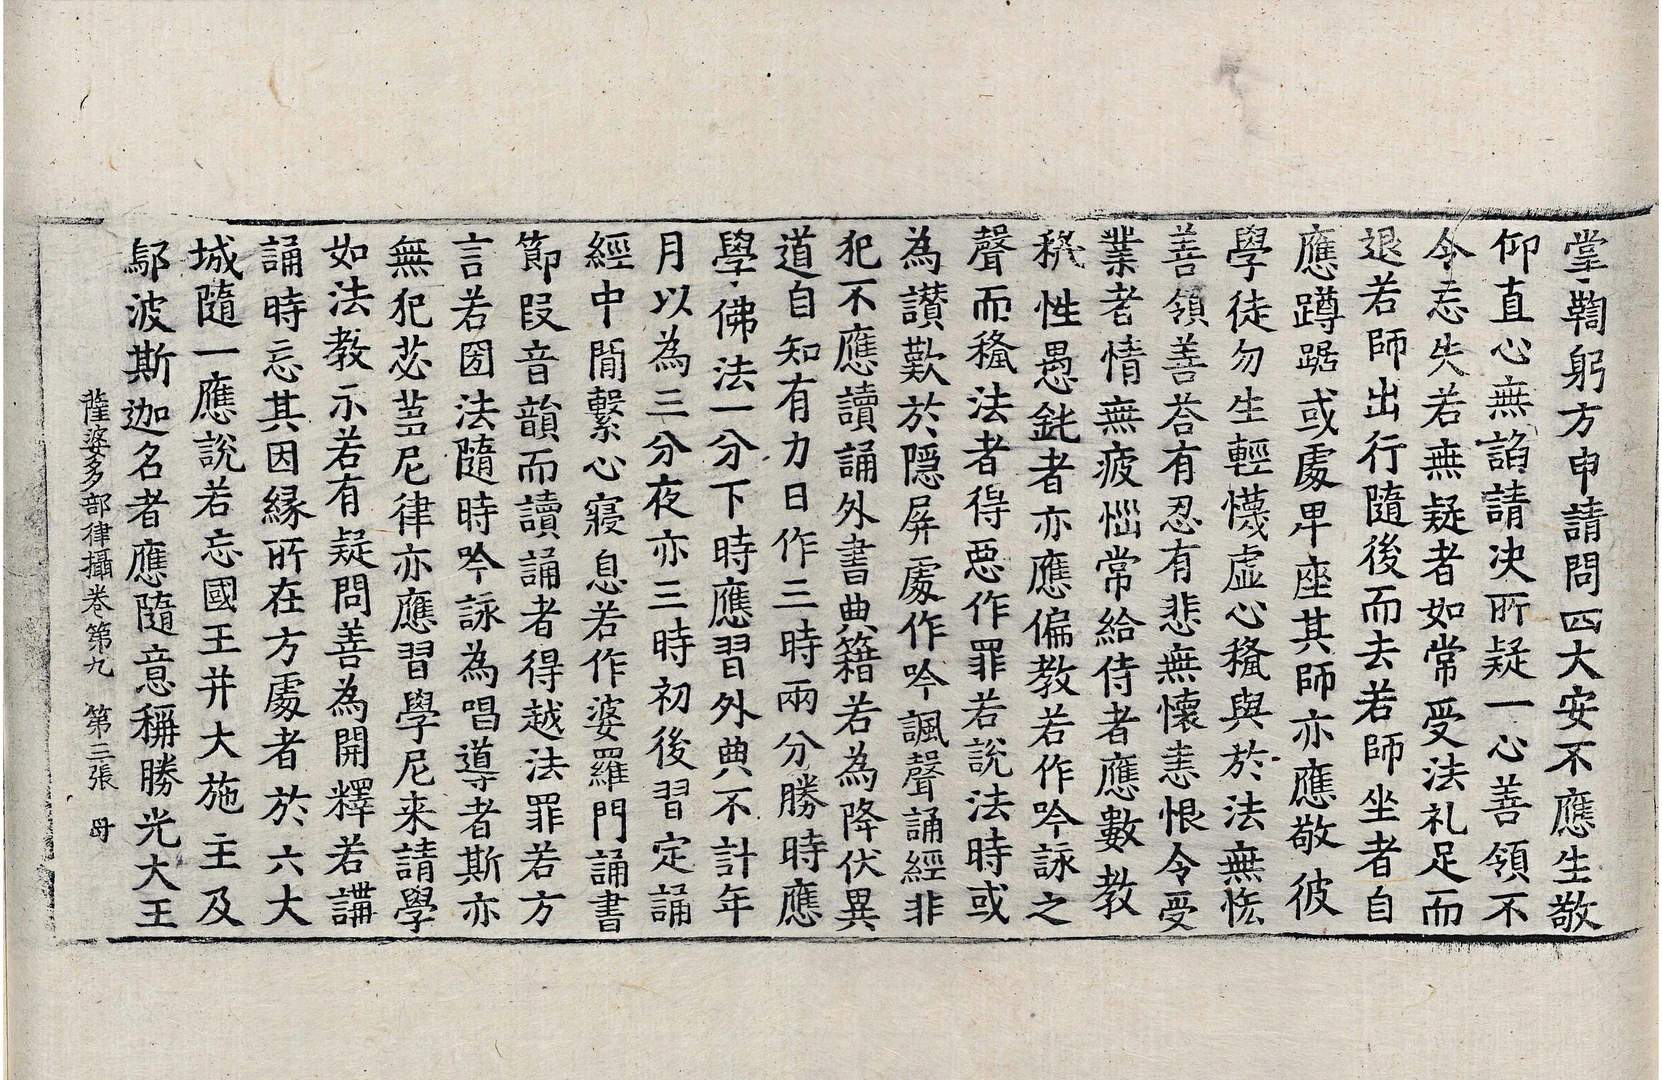 掌鞠躬方申請問四大安不應生敬
仰直心無諂請决所疑一心善領不
令忘失若無疑者如常受法礼足而
退若師出行隨後而去若師坐者自
應蹲踞或處卑座其師亦應敬彼
學徒勿生輕懱虛心㩲與於法無恡
善領善荅有忍有悲無懷恚恨令受
業者情無疲惱常給侍者應數教
㩲性愚鈍者亦應偏教若作吟詠之
聲而㩲法者得惡作罪若說法時或
為讃歎於隱屏處作吟諷聲誦經非
犯不應讀誦外書典籍若為降伏異
道自知有力日作三時兩分勝時應
學佛法一分下時應習外典不計年
月以為三分夜亦三時初後習定誦
經中間繫心寢息若作婆羅門誦書
節段音韻而讀誦者得越法罪若方
言若國法隨時吟詠為唱導者斯亦
無犯苾芻尼律亦應習學尼来請學
如法教示若有疑問善為開釋若講
誦時忘其因緣所在方處者於六大
城隨一應說若忘國王并大施主及
鄔波斯迦名者應隨意稱勝光大王
薩婆多部律攝卷第九　第三張　母